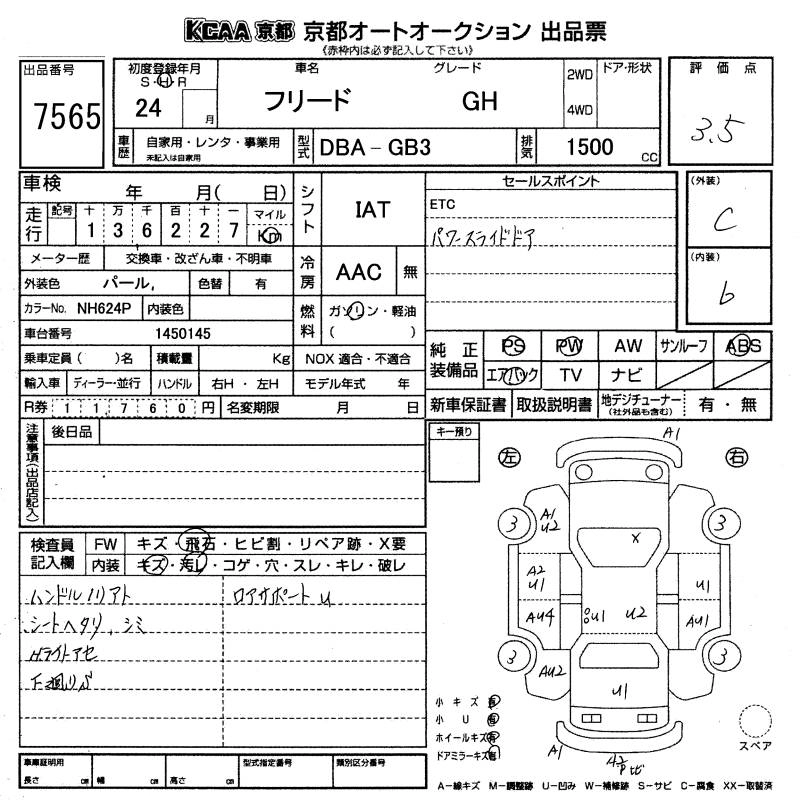 KCAA 京都 京都オートオークション 出品票
《赤枠内は必ず記入して下さい》
出品番号 7565
初度登録年月 S・H・R 24 月
車名 フリード
グレード GH
2WD 4WD
ドア・形状
評価点 3.5
車歴 自家用・レンタ・事業用 未記入は自家用
型式 DBA-GB3
排気 1500 cc
車検 年 月( 日)
走行 記号 十 万 千 百 十 一 マイル
1 3 6 2 2 7 Km
メーター歴 交換車・改ざん車・不明車
外装色 パール, 色替 有
カラーNo. NH624P 内装色
車台番号 1450145
乗車定員( )名 積載量 Kg
輸入車 ディーラー・並行 ハンドル 右H・左H
R券 11,760 円 名変期限 月 日
シフト IAT
冷房 AAC 無
燃料 ガソリン・軽油
( )
NOX 適合・不適合
モデル年式 年
セールスポイント
ETC
パワースライドドア
(外装) C
(内装) b
純正装備品 PS PW AW サンルーフ ABS
エアバック TV ナビ
新車保証書 取扱説明書 地デジチューナー (社外品も含む) 有・無
注意事項(出品店記入)
後日品
キー預り
検査員記入欄
FW キズ・飛石・ヒビ割・リペア跡・X要
内装 キズ・汚レ・コゲ・穴・スレ・キレ・破レ
ハンドルノリアト
シートヘタリ, シミ
Hライトアセ
下廻りサビ
ロアサポート U
左 右
A1
3 3
A1 U2
X
A2 U1
U1
AU4
U1
U2
AU1
3 3
AU2
U1
A1
小キズ 有
小U 有
ホイールキズ 有
ドアミラーキズ 有
スペア
A-線キズ M-調整跡 U-凹み W-補修跡 S-サビ C-腐食 XX-取替済
車庫証明用
長さ cm 幅 cm 高さ cm
型式指定番号
類別区分番号